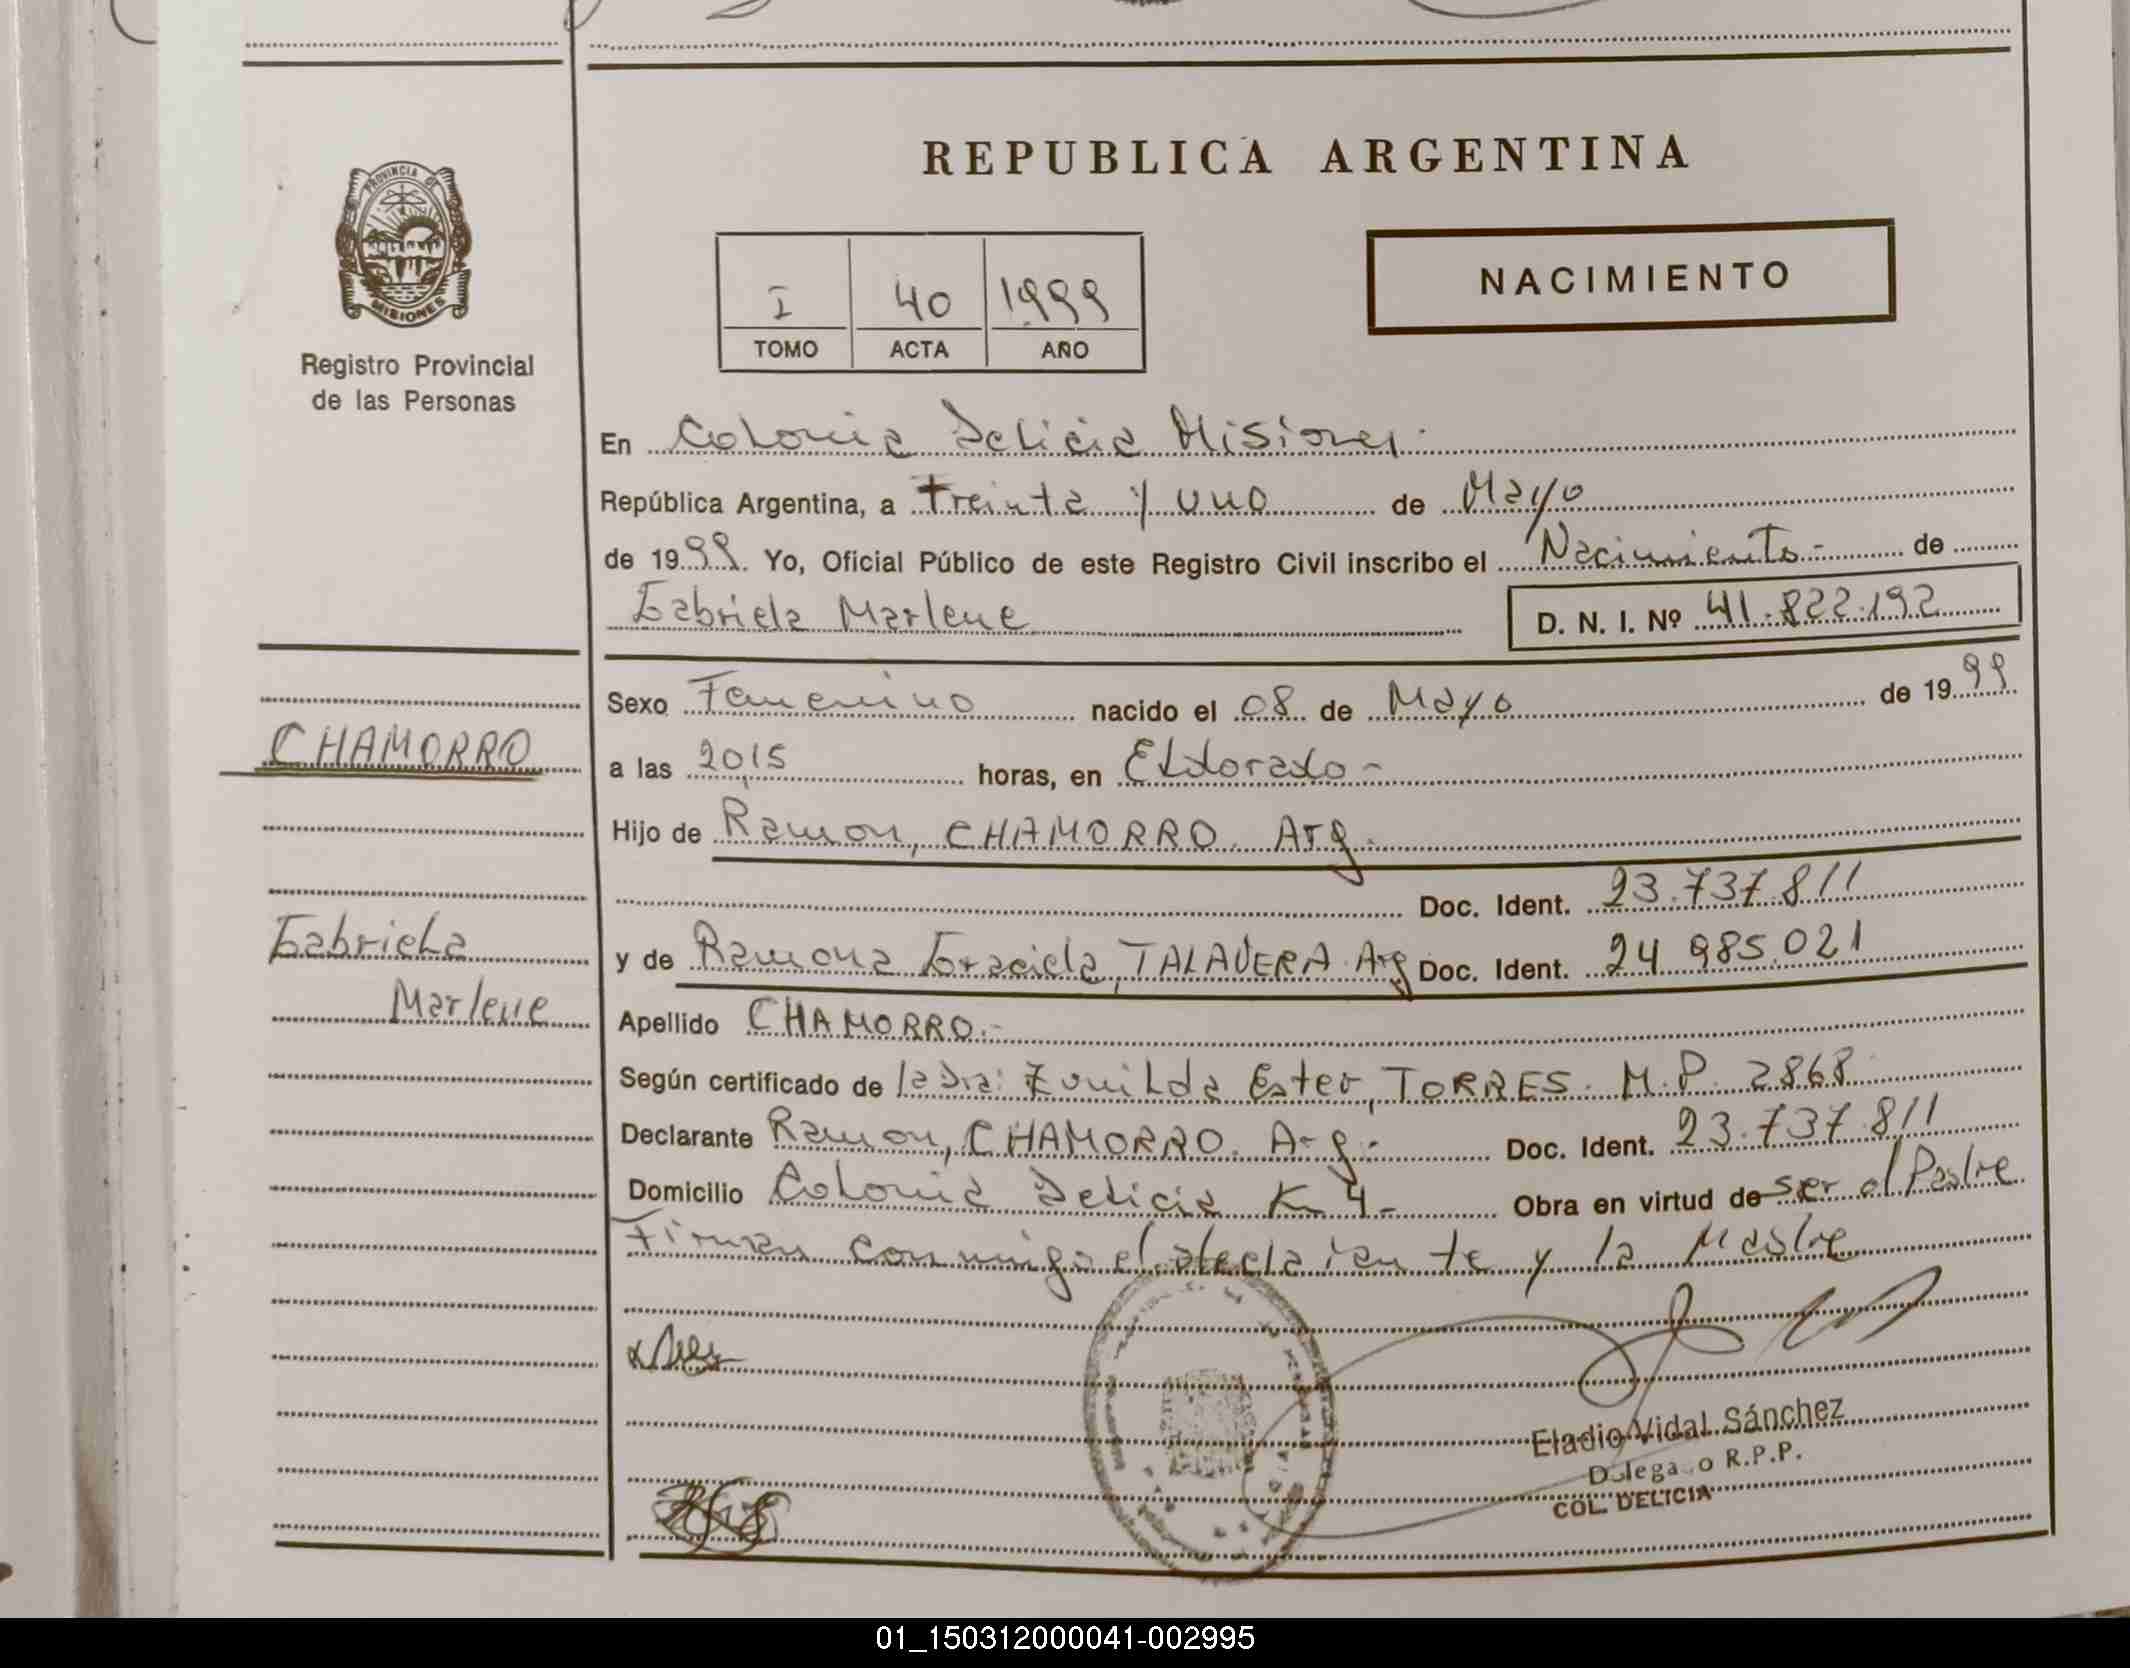 REPUBLICA ARGENTINA
PROVINCIA DE
MISIONES
Registro Provincial
de las Personas
I 40 1999
TOMO ACTA AÑO
NACIMIENTO
En Colonia Delicia Misiones.
República Argentina, a treinta y uno de Mayo
de 1999. Yo, Oficial Público de este Registro Civil inscribo el Nacimiento - de
Gabriela Marlene D. N. I. Nº 41.822.192
Sexo Femenino nacido el 08 de Mayo de 1999
CHAMORRO
a las 2015 horas, en Eldorado -
Hijo de Ramon, CHAMORRO. Arg.
Doc. Ident. 23.737.811
Gabriela
y de Ramona Graciela, TALAVERA. Arg Doc. Ident. 24 985.021
Marlene
Apellido CHAMORRO.-
Según certificado de la Dra: Zunilda Ester, TORRES. M.P. 2868
Declarante Ramon, CHAMORRO. Arg.- Doc. Ident. 23.737.811
Domicilio Colonia Delicia K 4 - Obra en virtud de ser el Padre
Firman conmigo el declarante y la Madre
Eladio Vidal Sánchez
Delegado R.P.P.
COL. DELICIA
01_150312000041-002995